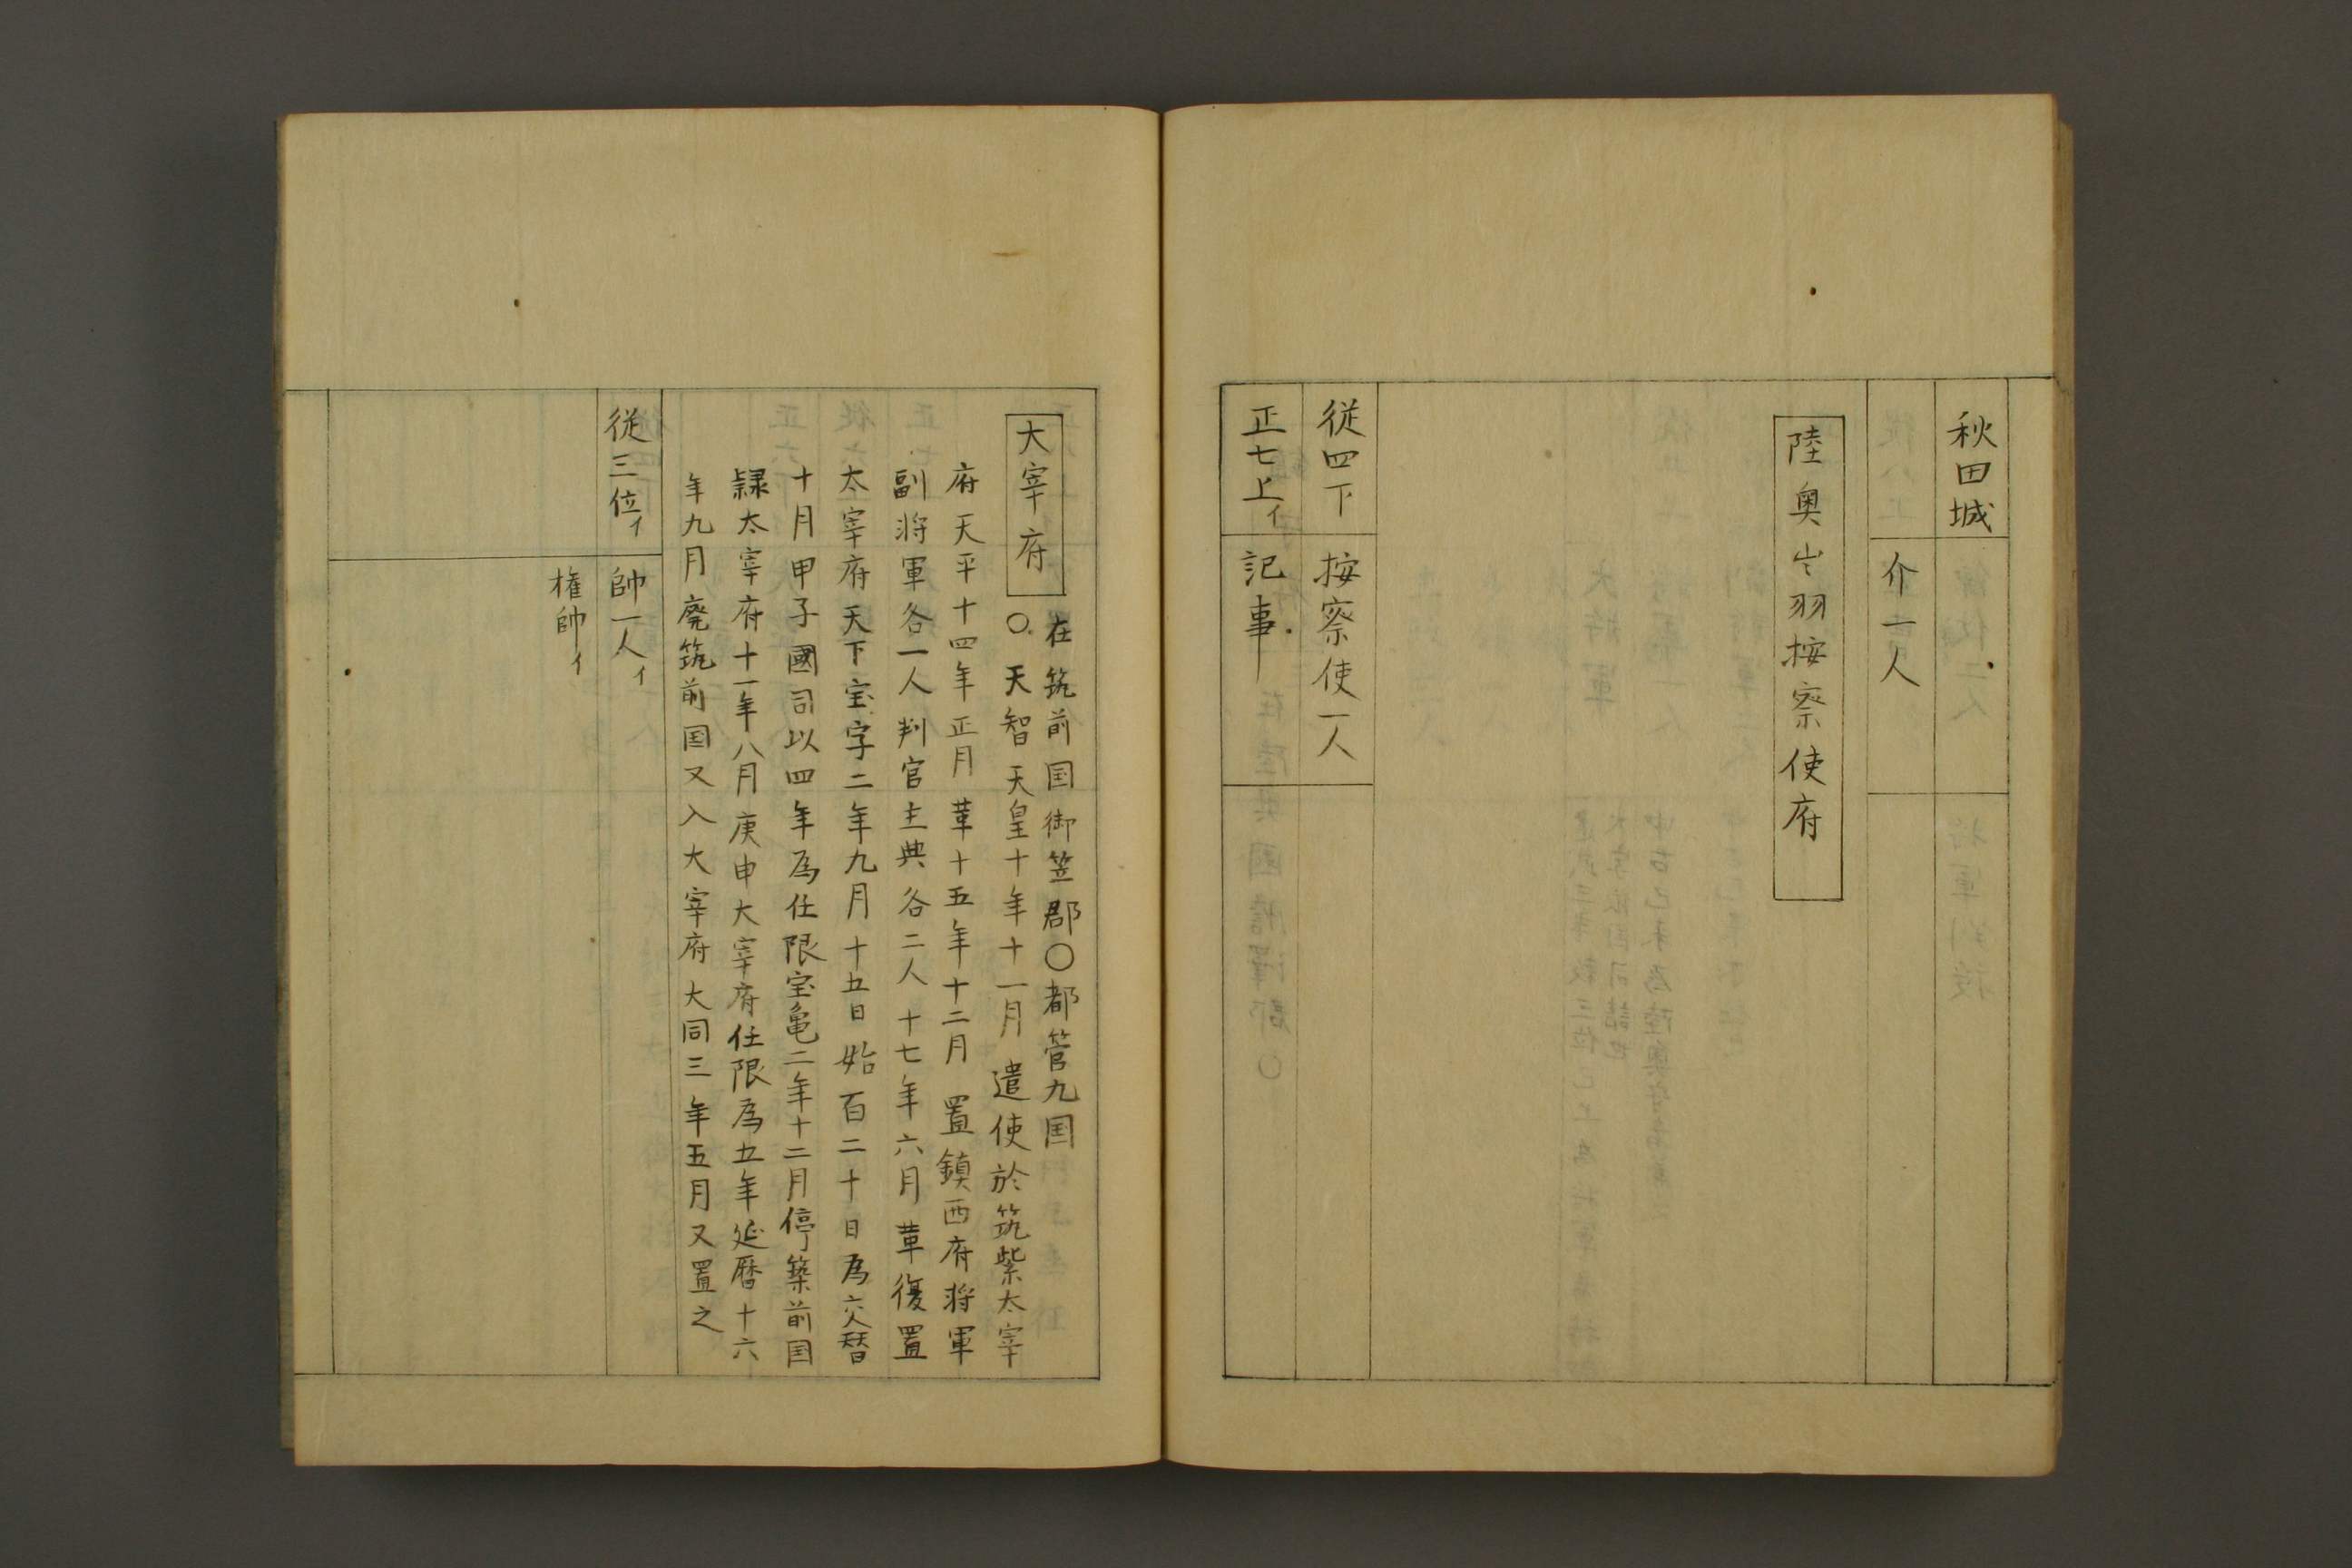 秋田城
介一人
陸奥出羽按察使府
従四下 按察使一人
正七上イ 記事
大宰府 在筑前国御笠郡〇都管九国
〇天智天皇十年十一月遣使於筑紫太宰
府天平十四年正月革十五年十二月置鎮西府将軍
副将軍各一人判官主典各二人十七年六月革復置
太宰府天下宝字二年九月十五日始百二十日為交替
十月甲子國司以四年為任限宝亀二年十二月停築前国
隷太宰府十一年八月庚申大宰府任限為五年延暦十六
年九月廃筑前国又入大宰府大同三年五月又置之
従三位イ 帥一人イ
権帥イ